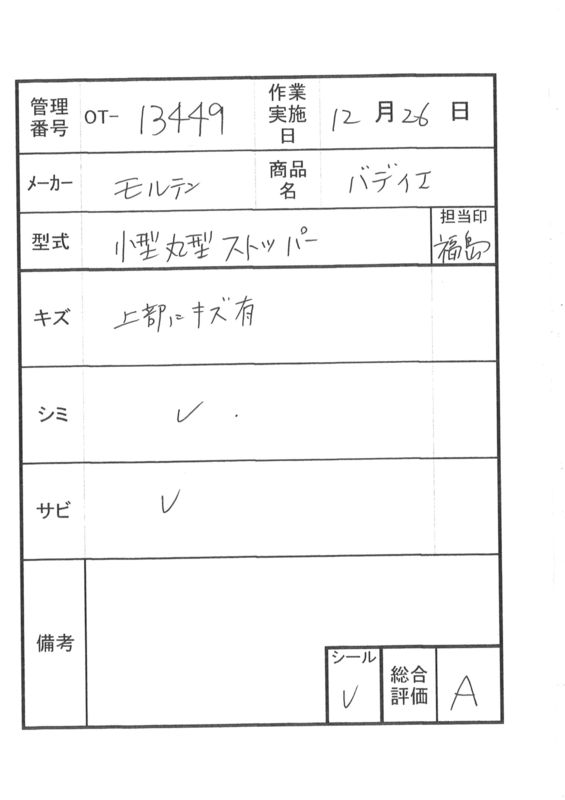 管理番号 OT- 13449 作業実施日 12月26日
メーカー モルテン 商品名 バディエ
型式 小型丸型ストッパー 担当印 福島
キズ 上部にキズ有
シミ ✓
サビ ✓
備考
シール ✓ 総合評価 A